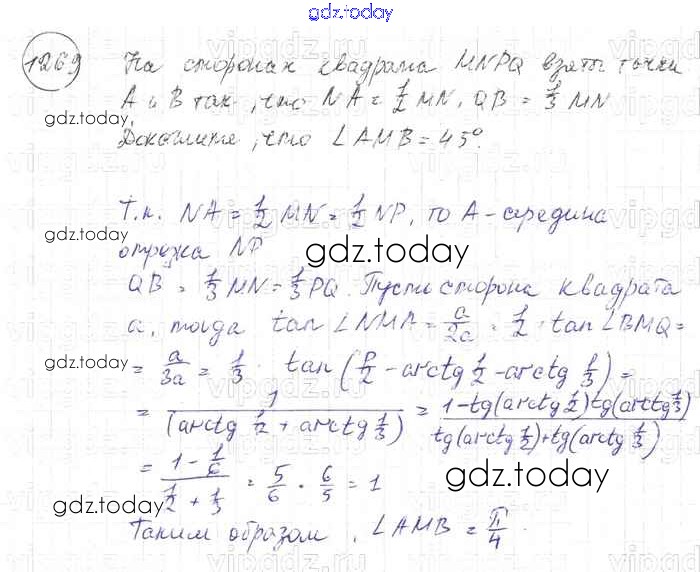 gdz.today
1269 На сторонах квадрата MNPQ взяты точки
A и B так, что NA = 1/2 MN, QB = 1/3 MN
gdz.today
Докажите, что ∠AMB = 45°.
Т.к. NA = 1/2 MN = 1/2 NP, то A - середина
отрезка NP
gdz.today
QB = 1/3 MN = 1/3 PQ. Пусть сторона квадрата
a, тогда tan ∠NMA = a/2a = 1/2 · tan ∠BMQ =
gdz.today
= a/3a = 1/3 · tan(p/2 - arctg 1/2 - arctg 1/3) =
= 1/(arctg 1/2 + arctg 1/3) = 1-tg(arctg 1/2)tg(arctg 1/3)/tg(arctg 1/2)+tg(arctg 1/3)
= 1 - 1/6 / 1/2 + 1/3 = 5/6 · 6/5 = 1
gdz.today
gdz.today
Таким образом, ∠AMB = π/4.
gdz.today